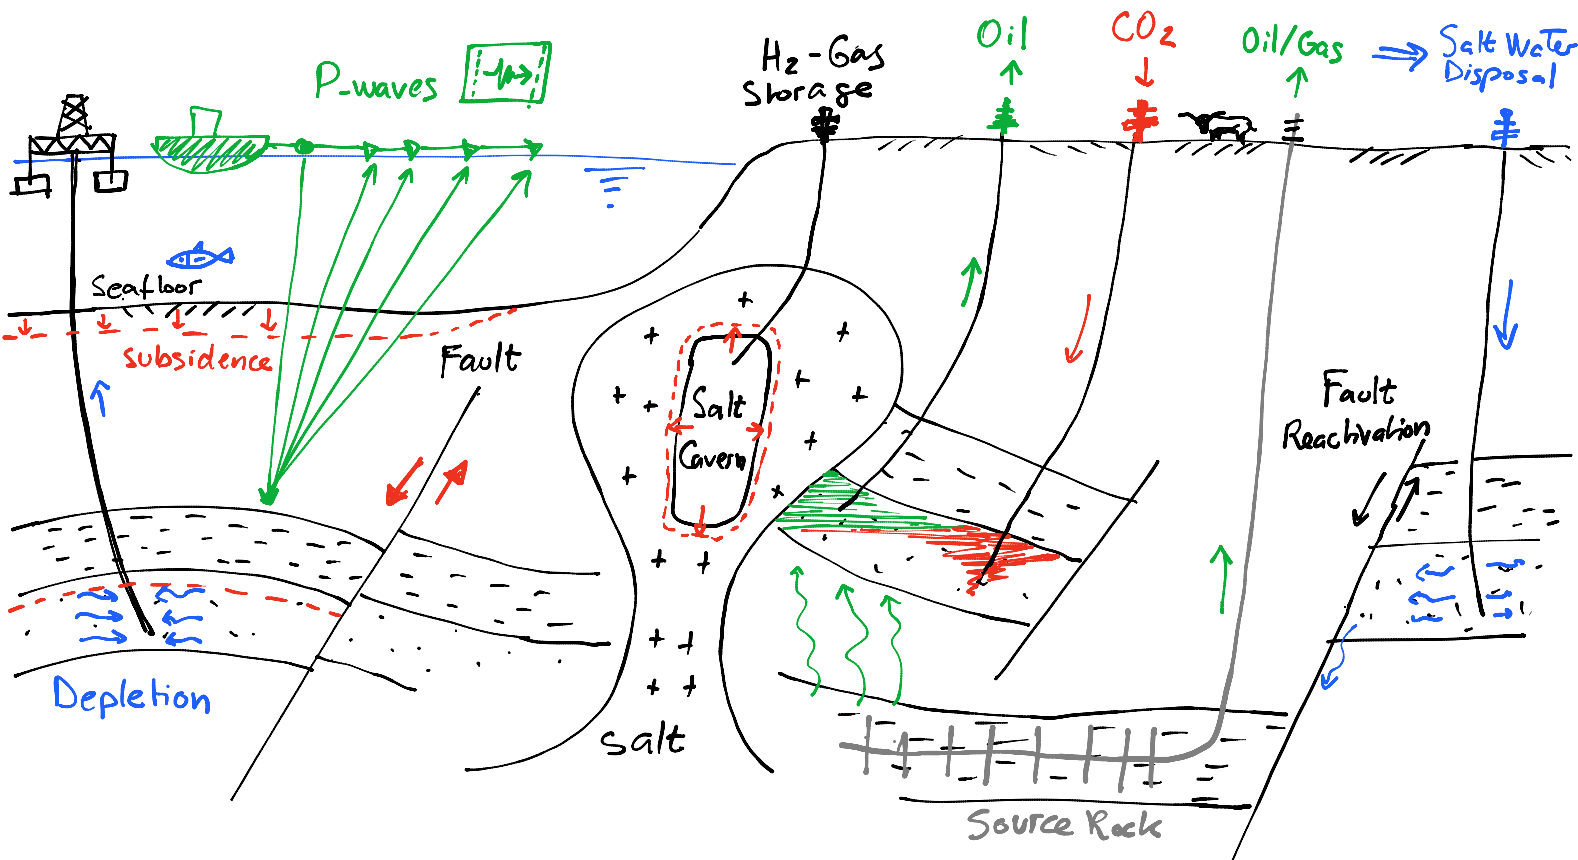 P-waves
H₂-Gas
Storage
Oil
CO₂
Oil/Gas
Salt Water
Disposal
Seafloor
subsidence
Fault
Salt
Cavern
Fault
Reactivation
Depletion
Salt
Source Rock